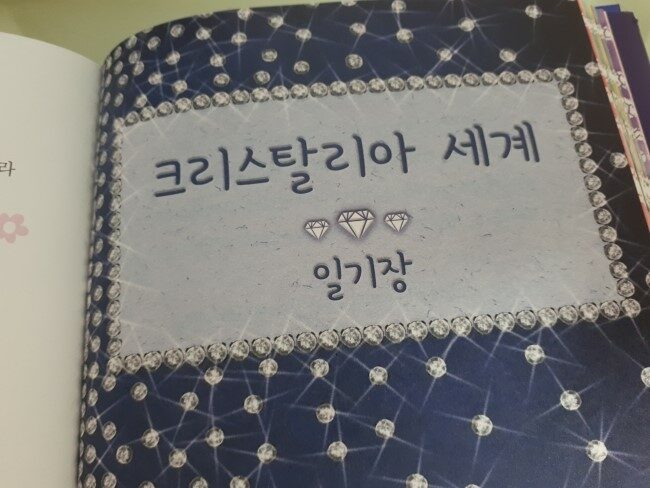 라
크리스탈리아 세계
일기장